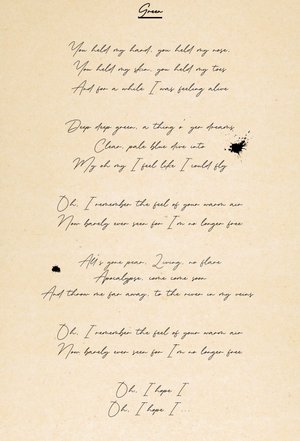 Green
You held my hand, you held my nose,
You held my skin, you held my toes
And for a while I was feeling alive
Deep deep green, a thing o' yer dreams
Clear, pale blue dive into
My oh my I feel like I could fly
Oh, I remember the feel of your warm air
Now barely ever seen for I'm no longer free
All's gone pear, Living, no flare
Apocalypse, come come soon
And throw me far away, to the river in my veins
Oh, I remember the feel of your warm air
Now barely ever seen for I'm no longer free
Oh, I hope I
Oh, I hope I...